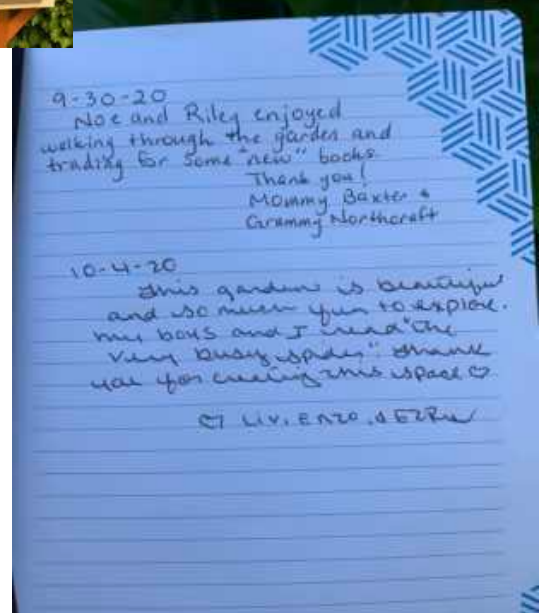 9-30-20
Noe and Riley enjoyed
walking through the garden and
trading for some "new" books.
Thank you!
Mommy Baxter &
Grammy Northcraft
10-4-20
This garden is beautiful
and so much fun to explore.
my boys and I read "the
very busy spider". Thank
you for creating this space ♡
♡ Liv, Enzo, & Ezra